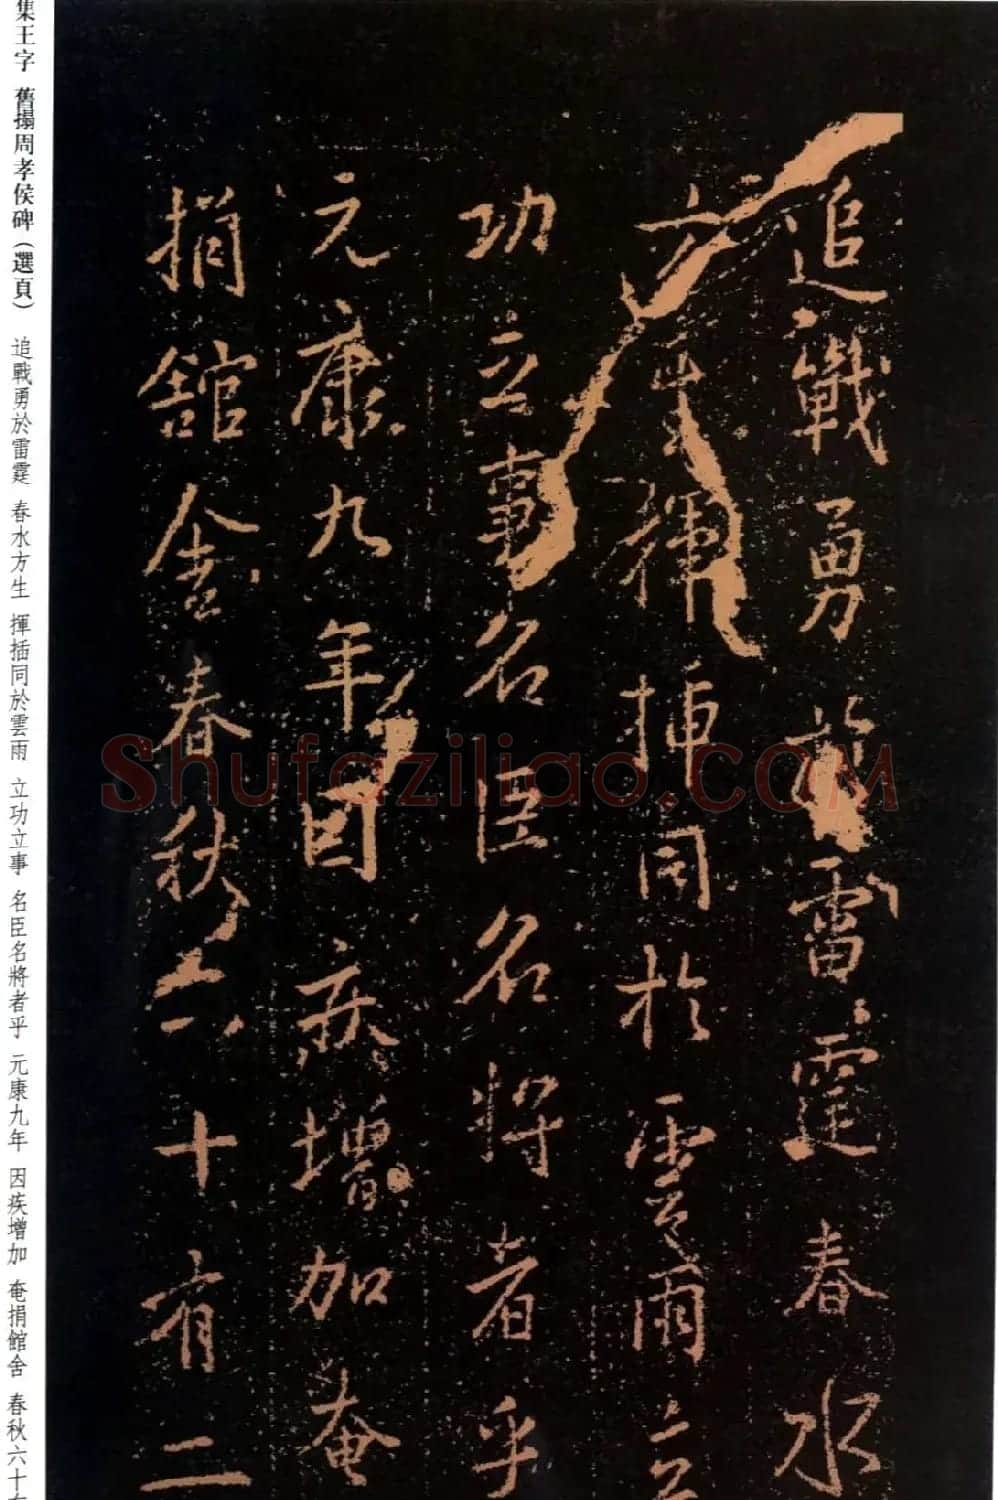 追戰勇於雷霆春水
方生揮插同於雲雨立
功立事名臣名將者乎
元康九年因疾增加奄
捐館舍春秋六十有二
集王字 舊搨周孝侯碑(選頁) 追戰勇於雷霆 春水方生 揮插同於雲雨 立功立事 名臣名將者乎 元康九年 因疾增加 奄捐館舍 春秋六十有
Shufaziliao.COM